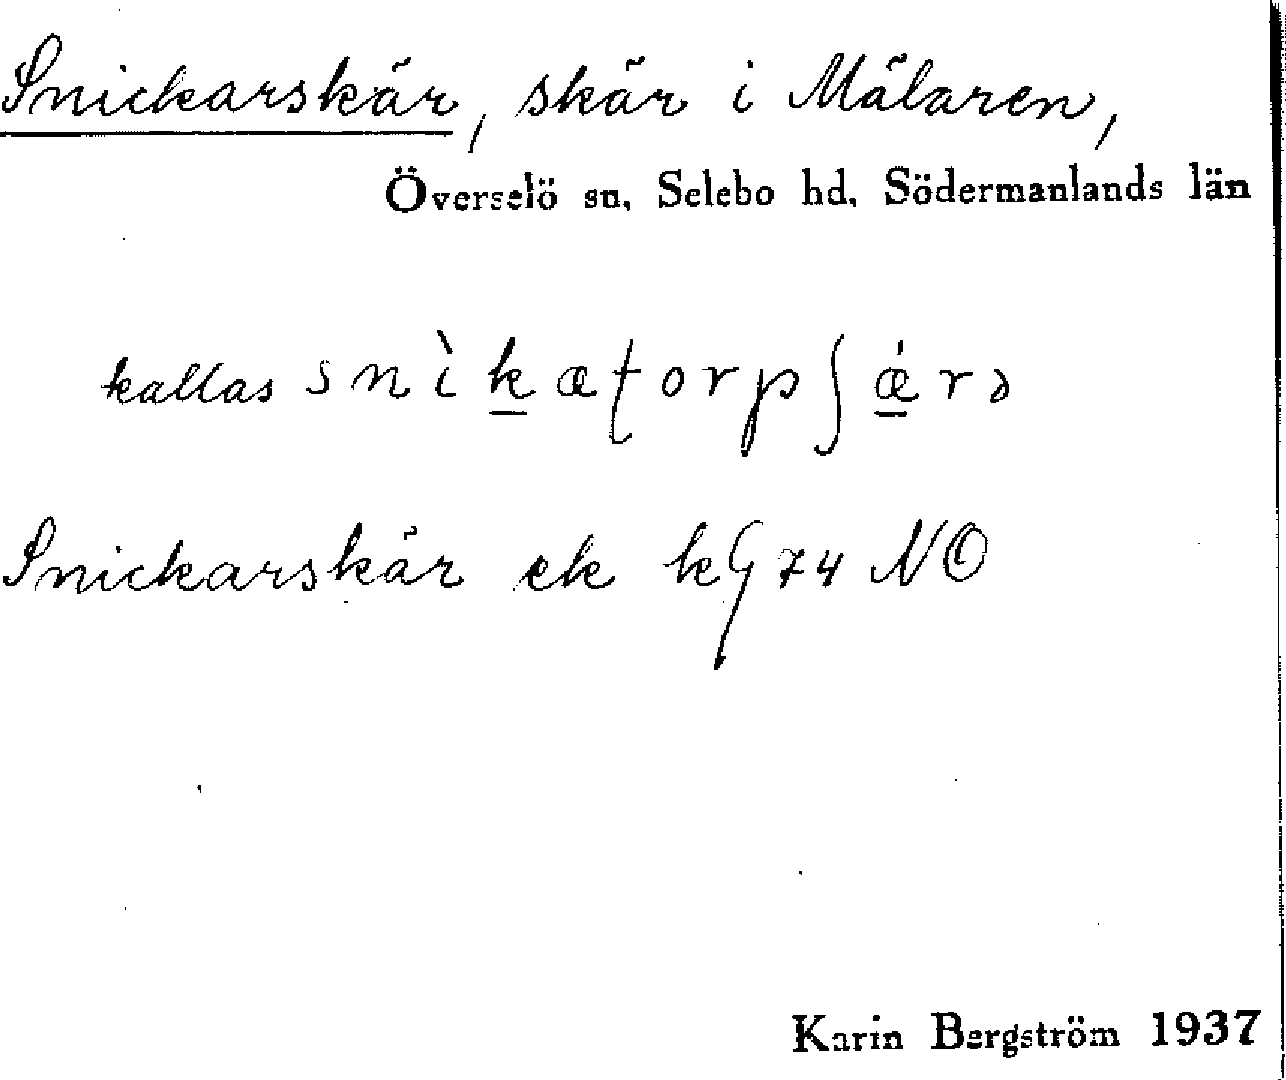 Snickarskär, skär i Mälaren,
Överselö sn, Selebo hd, Södermanlands län
kallas snìkaʈorpʃǽrə
Snickarskär ek kG 74 NO
Karin Bergström 1937